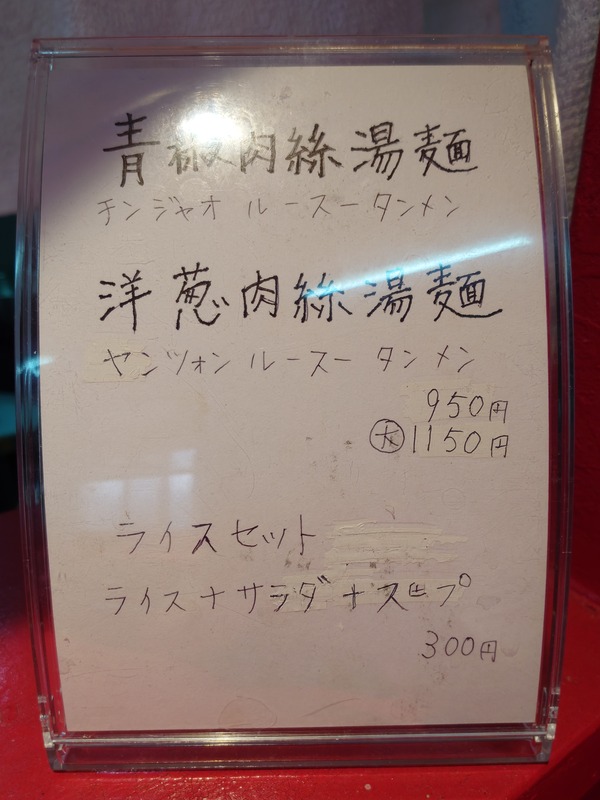 青椒肉絲湯麺
チンジャオ ルースータンメン
洋葱肉絲湯麺
ヤンツォン ルースー タンメン
950円
大1150円
ライスセット
ライス+サラダ+スープ
300円